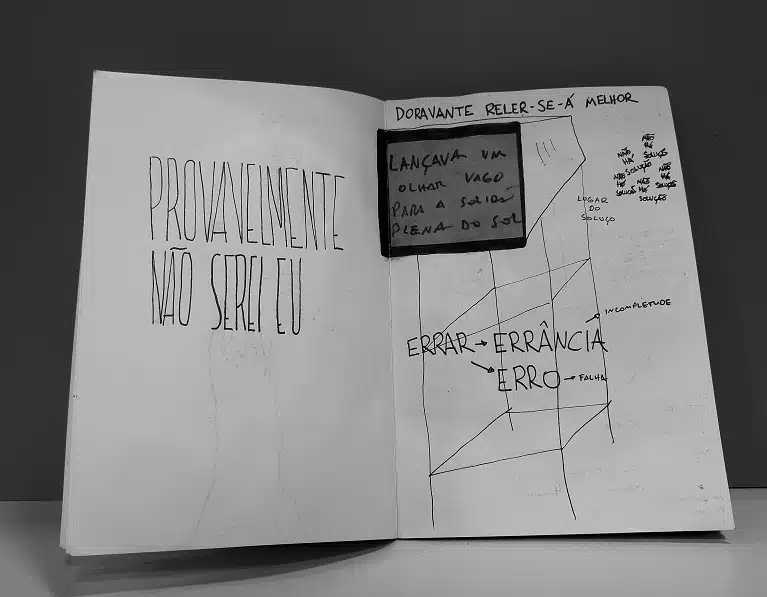 PROVAVELMENTE
NÃO SEREI EU
DORAVANTE RELER-SE-Á MELHOR
LANÇAVA UM
OLHAR VAGO
PARA A
PLENA DO SOL
NÃO
HÁ
NÃO
HÁ
SOLUÇÃO
NÃO
HÁ
NÃO
HÁ
SOLUÇÃO
NÃO
HÁ
LUGAR
DO
SOLUÇO
INCOMPLETUDE
ERRAR → ERRÂNCIA
ERRO → FALHA